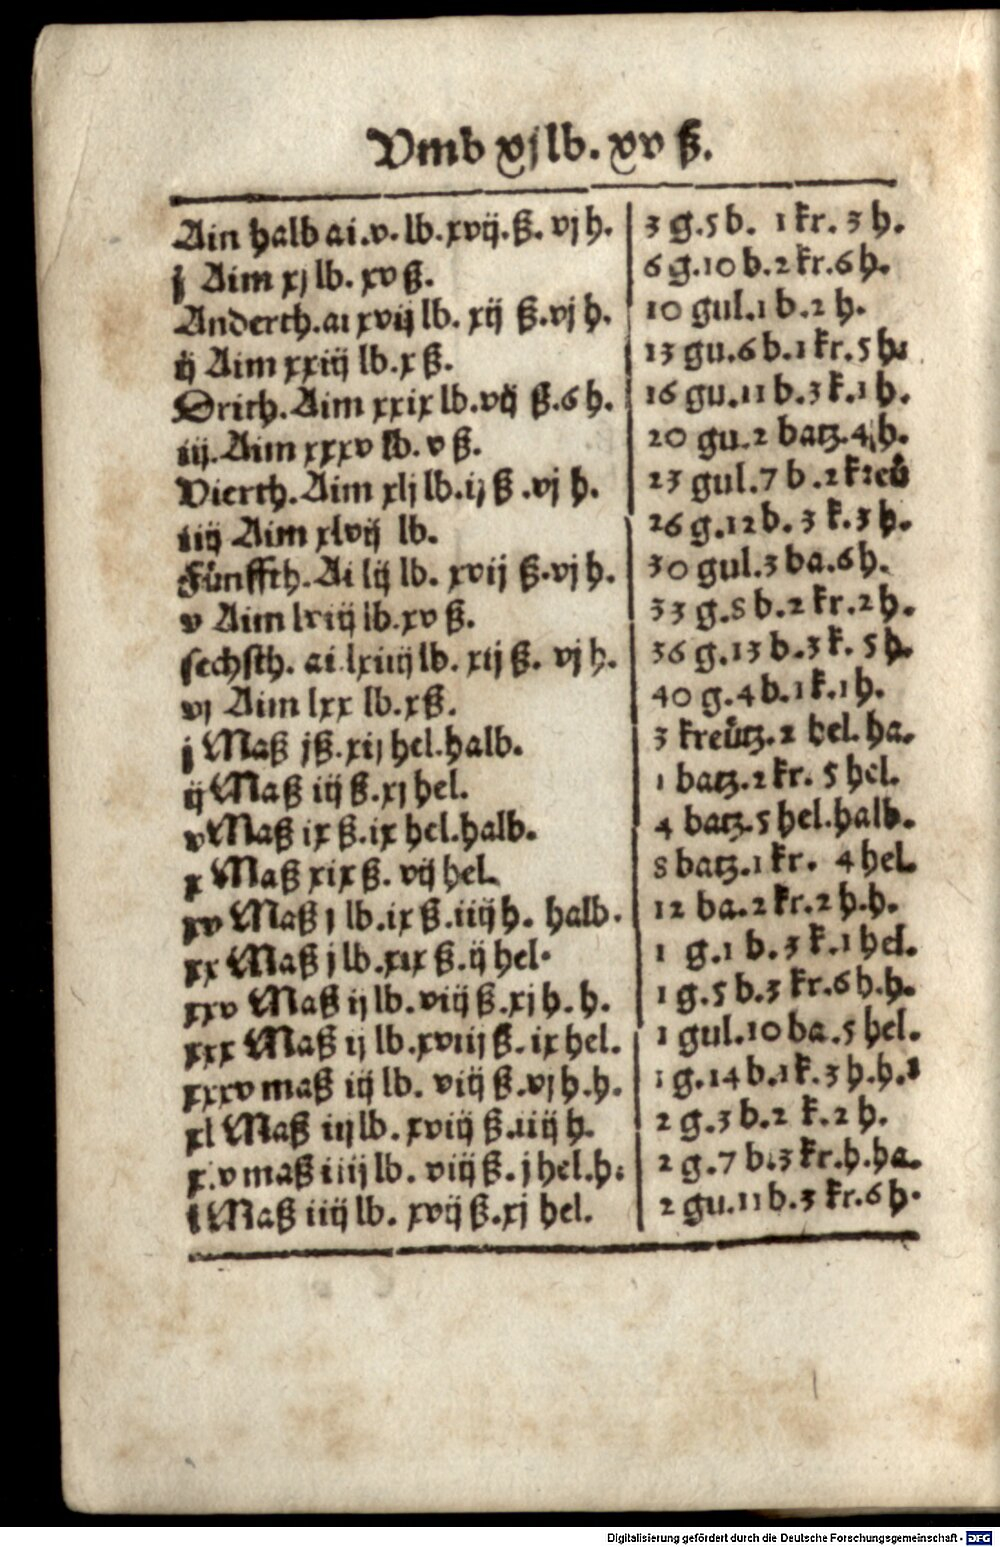 Vmb xj lb. xv ß.
Ain halb ai.v.lb.xvij.ß.vj h. 3 g.5 b. 1 kr. 3 h.
j Aim xj lb. xv ß. 6 g.10 b.2 kr.6 h.
Anderth.ai xvij lb. xij ß.vj h. 10 gul.1 b.2 h.
ij Aim xxiij lb.x ß. 13 gu.6 b.1 kr.5 h.
Drith.Aim xxix lb.vij ß.6 h. 16 gu.11 b.3 k.1 h.
iij.Aim xxxv lb.v ß. 20 gu.2 batz.4 h.
Vierth.Aim xlj lb.ij ß.vj h. 23 gul.7 b.2 kreü
iiij Aim xlvij lb. 26 g.12 b.3 k.3 h.
Fünffth.Ai lij lb. xvij ß.vj h. 30 gul.3 ba.6 h.
v Aim lviij lb.xv ß. 33 g.8 b.2 kr.2 h.
sechsth. ai lxiiij lb. xij ß. vj h. 36 g.13 b.3 k. 5 h.
vj Aim lxx lb.x ß. 40 g.4 b.1 k.1 h.
j Maß j ß.xij hel.halb. 3 kreütz.2 hel.ha.
ij Maß iij ß.xj hel. 1 batz.2 kr. 5 hel.
v Maß ix ß.ix hel.halb. 4 batz.5 hel.halb.
x Maß xix ß. vij hel. 8 batz.1 kr. 4 hel.
xv Maß j lb.ix ß.iiij h. halb. 12 ba.2 kr.2 h.h.
xx Maß j lb.xix ß.ij hel. 1 g.1 b.3 k.1 hel.
xxv Maß ij lb.viij ß.xj h.h. 1 g.5 b.3 kr.6 h.h.
xxx Maß ij lb.xviij ß.ix hel. 1 gul.10 ba.5 hel.
xxxv maß iij lb. viij ß.vj h.h. 1 g.14 b.1 k.3 h.h.
xl Maß iij lb.xviij ß.iiij h. 2 g.3 b.2 k.2 h.
x.v maß iiij lb. viij ß.j hel.h. 2 g.7 b.3 kr.h.ha.
l Maß iiij lb. xvij ß.xj hel. 2 gu.11 b.3 kr.6 h.
Digitalisierung gefördert durch die Deutsche Forschungsgemeinschaft - DFG